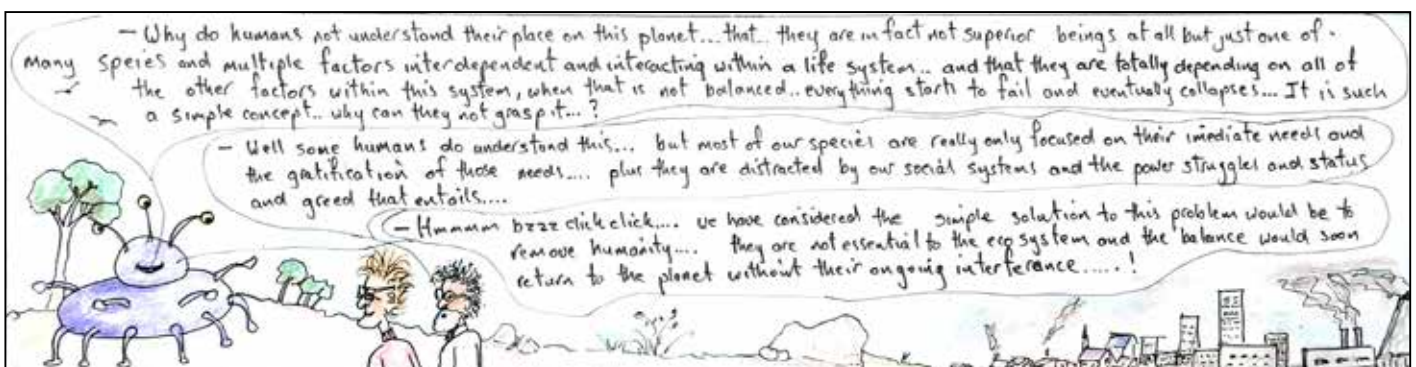 – Why do humans not understand their place on this planet... that.. they are in fact not superior beings at all but just one of.
many species and multiple factors interdependent and interacting within a life system.. and that they are totally depending on all of
the other factors within this system, when that is not balanced.. everything starts to fail and eventually collapses... It is such
a simple concept.. why can they not grasp it...?
– Well some humans do understand this... but most of our species are really only focused on their imediate needs and
the gratification of those needs.... plus they are distracted by our social systems and the power struggles and status
and greed that entails....
– Hmmmm bzzz click click.... we have considered the simple solution to this problem would be to
remove humanity.... they are not essential to the eco system and the balance would soon
return to the planet without their ongoing interferance.....!